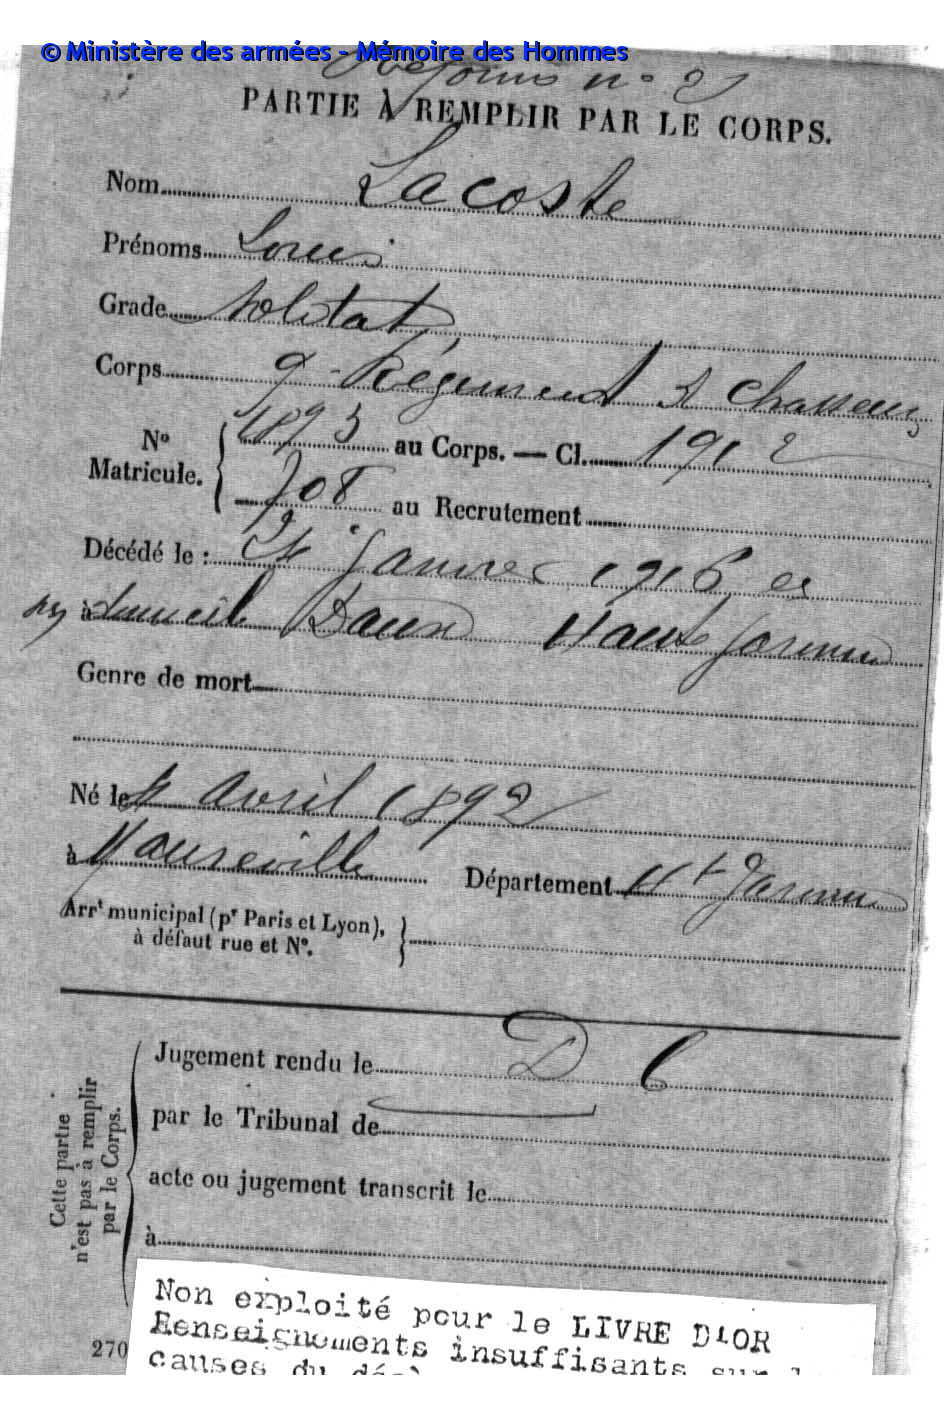 © Ministère des armées - Mémoire des Hommes
Réformé n° 2
PARTIE À REMPLIR PAR LE CORPS.
Nom Lacoste
Prénoms Louis
Grade soldat
Corps 9e Régiment de Chasseurs
No Matricule. { 1893 au Corps. — Cl. 1912
708 au Recrutement
Décédé le : 24 Janvier 1916 en
à domicile Daux Haute Garonne
Genre de mort
Né le 4 Avril 1892
à Département Hte Garonne
Arrt municipal (pr Paris et Lyon),
à défaut rue et No. }
Cette partie
n'est pas à remplir
par le Corps.
Jugement rendu le D C
par le Tribunal de
acte ou jugement transcrit le
à
270
Non exploité pour le LIVRE D'OR
Renseignements insuffisants sur l
causes du